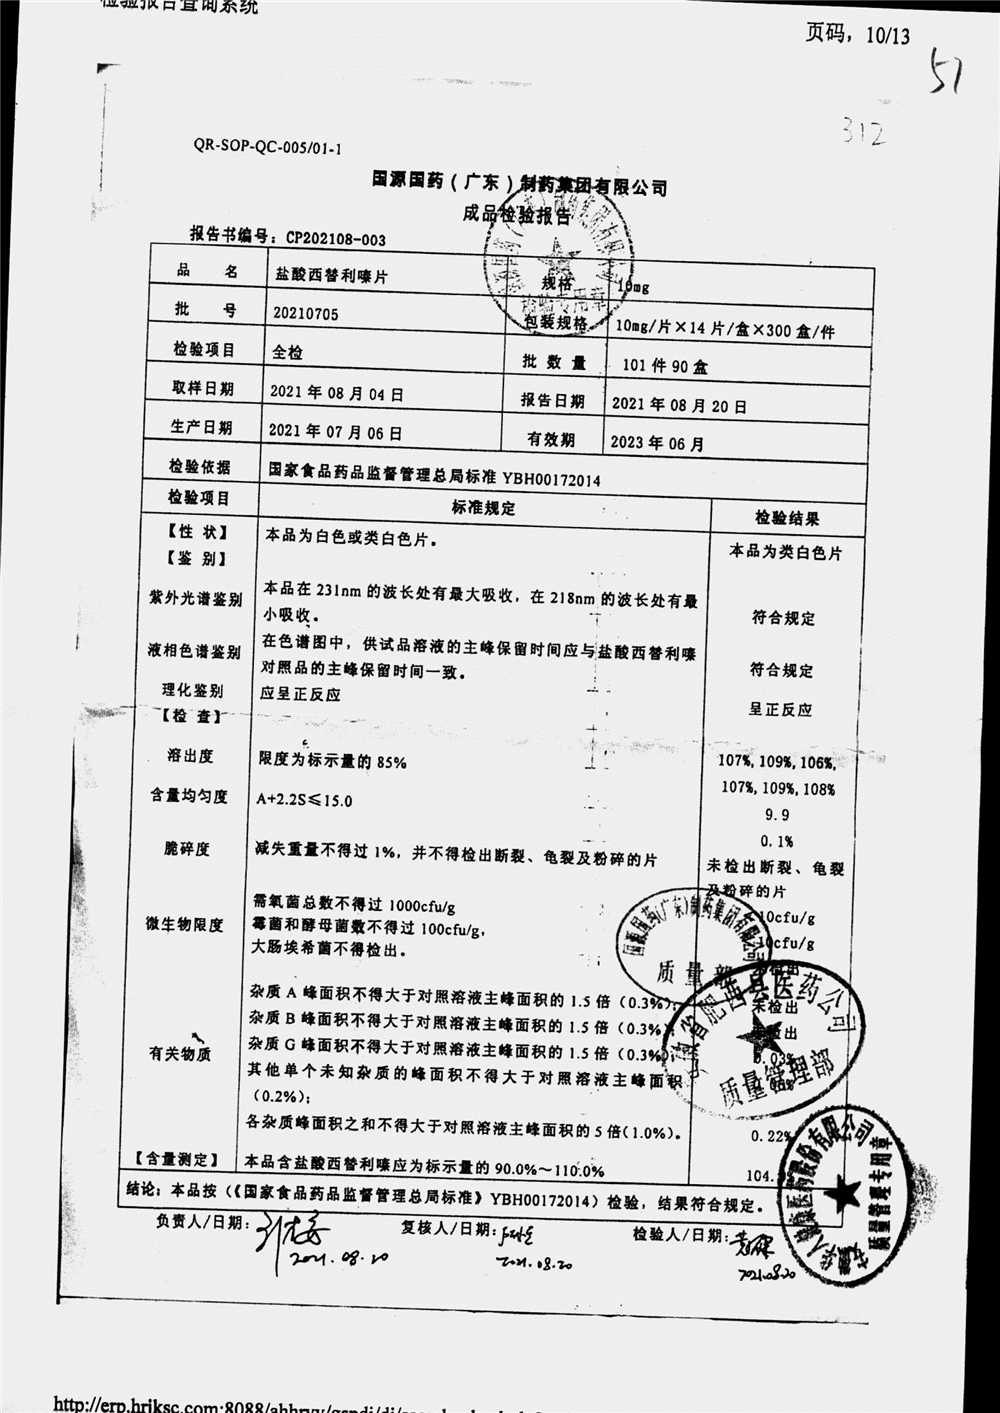 检验报告查询系统
页码，10/13
57
312
QR-SOP-QC-005/01-1
国源国药（广东）制药集团有限公司
成品检验报告
报告书编号：CP202108-003
品 名 盐酸西替利嗪片 规格 10mg
批 号 20210705 包装规格 10mg/片×14片/盒×300盒/件
检验项目 全检 批 数 量 101件90盒
取样日期 2021年08月04日 报告日期 2021年08月20日
生产日期 2021年07月06日 有效期 2023年06月
检验依据 国家食品药品监督管理总局标准YBH00172014
检验项目 标准规定 检验结果
【性 状】 本品为白色或类白色片。 本品为类白色片
【鉴 别】
紫外光谱鉴别 本品在231nm的波长处有最大吸收，在218nm的波长处有最
小吸收。 符合规定
液相色谱鉴别 在色谱图中，供试品溶液的主峰保留时间应与盐酸西替利嗪
对照品的主峰保留时间一致。 符合规定
理化鉴别 应呈正反应 呈正反应
【检 查】
溶出度 限度为标示量的85% 107%,109%,106%,
107%,109%,108%
含量均匀度 A+2.2S≤15.0 9.9
0.1%
脆碎度 减失重量不得过1%，并不得检出断裂、龟裂及粉碎的片 未检出断裂、龟裂
及粉碎的片
需氧菌总数不得过1000cfu/g 10cfu/g
微生物限度 霉菌和酵母菌数不得过100cfu/g， 10cfu/g
大肠埃希菌不得检出。 未检出
杂质A峰面积不得大于对照溶液主峰面积的1.5倍（0.3%）； 未检出
杂质B峰面积不得大于对照溶液主峰面积的1.5倍（0.3%）； 检出
有关物质 杂质G峰面积不得大于对照溶液主峰面积的1.5倍（0.3%）； 0.03%
其他单个未知杂质的峰面积不得大于对照溶液主峰面积
（0.2%）；
各杂质峰面积之和不得大于对照溶液主峰面积的5倍（1.0%）。 0.22%
【含量测定】 本品含盐酸西替利嗪应为标示量的90.0%～110.0% 104.
结论：本品按（《国家食品药品监督管理总局标准》YBH00172014）检验，结果符合规定。
负责人/日期： 复核人/日期： 检验人/日期：
2021.08.20 2021.08.20 2021.08.20
检验专用章
国源国药(广东)制药集团有限公司
质量部
省肥西县医药公司
质量管理部
质量管理专用章
http://erp.hriksc.com:8088/ahhryy/gspdj/dj/